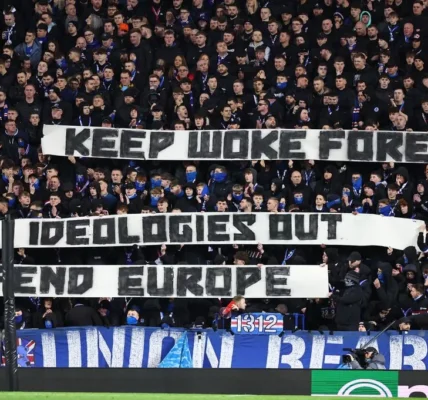 KEEP WOKE FORE
IDEOLOGIES OUT
END EUROPE
1312
UNION BEAR